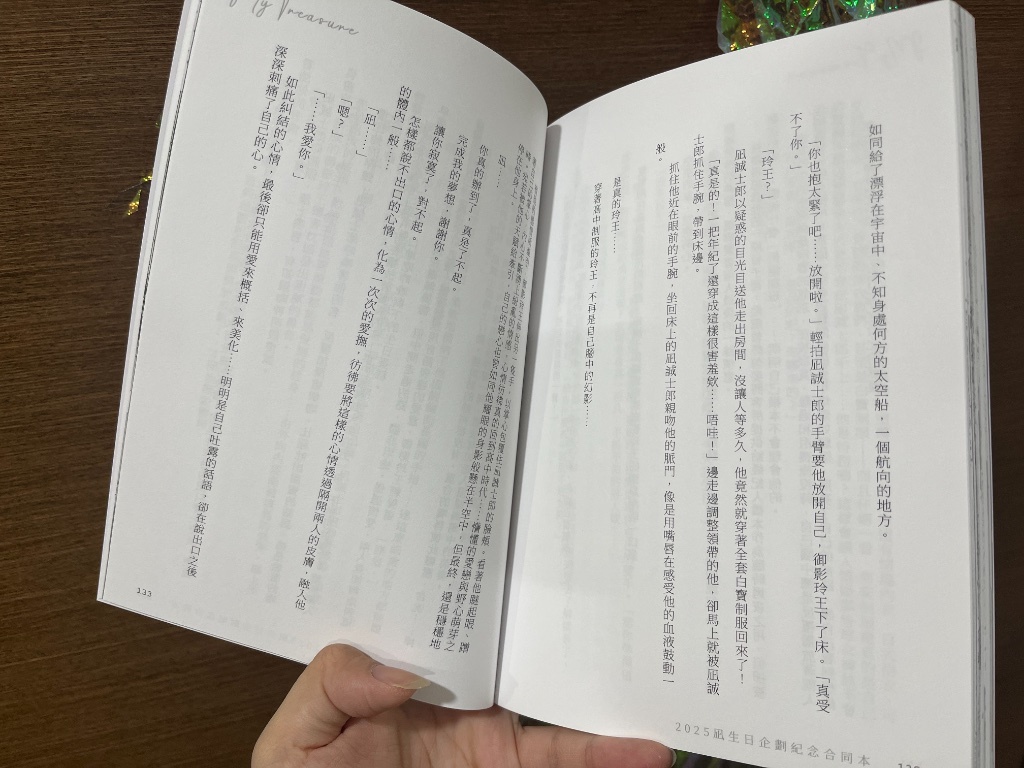 如同給了漂浮在宇宙中、不知身處何方的太空船，一個航向的地方。
「你也抱太緊了吧……放開啦。」輕拍凪誠士郎的手臂要他放開自己，御影玲王下了床。「真受
不了你。」
「玲王？」
凪誠士郎以疑惑的目光目送他走出房間，沒讓人等多久，他竟然就穿著全套白寶制服回來了！
「真是的！一把年紀了還穿成這樣很害羞欸……唔哇！」邊走邊調整領帶的他，卻馬上就被凪誠
士郎抓住手腕，帶到床邊。
抓住他近在眼前的手腕，坐回床上的凪誠士郎親吻他的脈門，像是用嘴唇在感受他的血液鼓動一
般。
是真的玲王……
穿著高中制服的玲王，不再是自己腦中的幻影……
2025凪生日企劃紀念合同本
My Treasure
凪……
你真的辦到了，真是了不起。
完成我的夢想，謝謝你。
讓你寂寞了，對不起。
怎樣都說不出口的心情，化為一次次的愛撫，彷彿要將這樣的心情透過隔開兩人的皮膚，融入他
的體內一般……
「凪……」
「嗯？」
「……我愛你。」
如此糾結的心情，最後卻只能用愛來概括、來美化……明明是自己吐露的話語，卻在說出口之後
深深刺痛了自己的心。
133